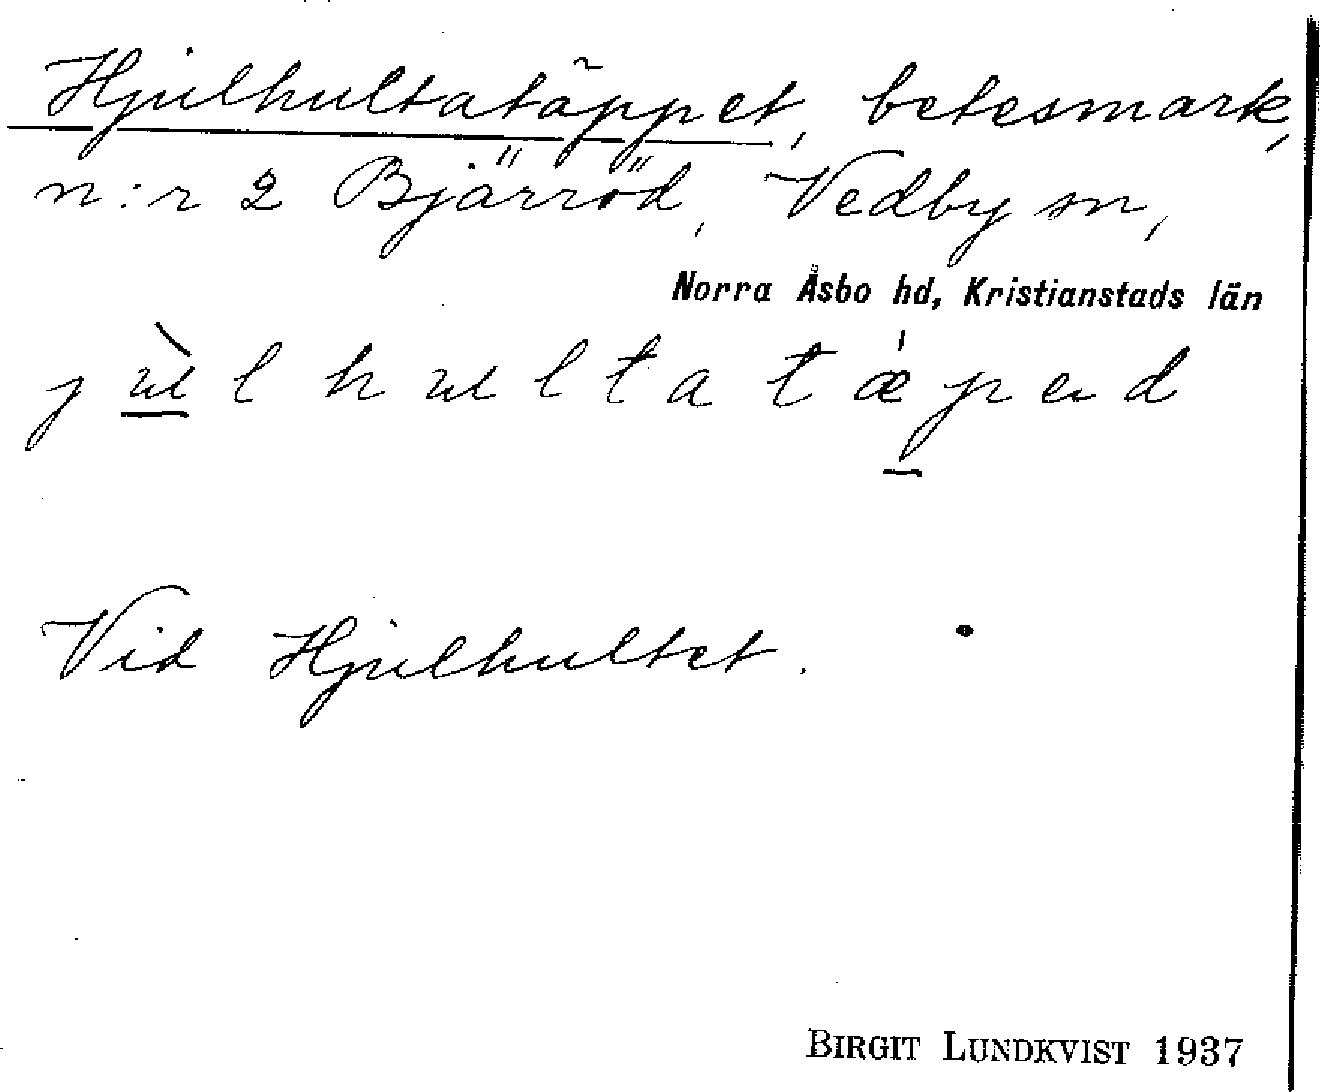 Hjulhultatäppet, betesmark,
n:r 2 Bjärröd, Vedby sn,
Norra Åsbo hd, Kristianstads län
jùlhultatǽped
Vid Hjulhultet.
BIRGIT LUNDKVIST 1937